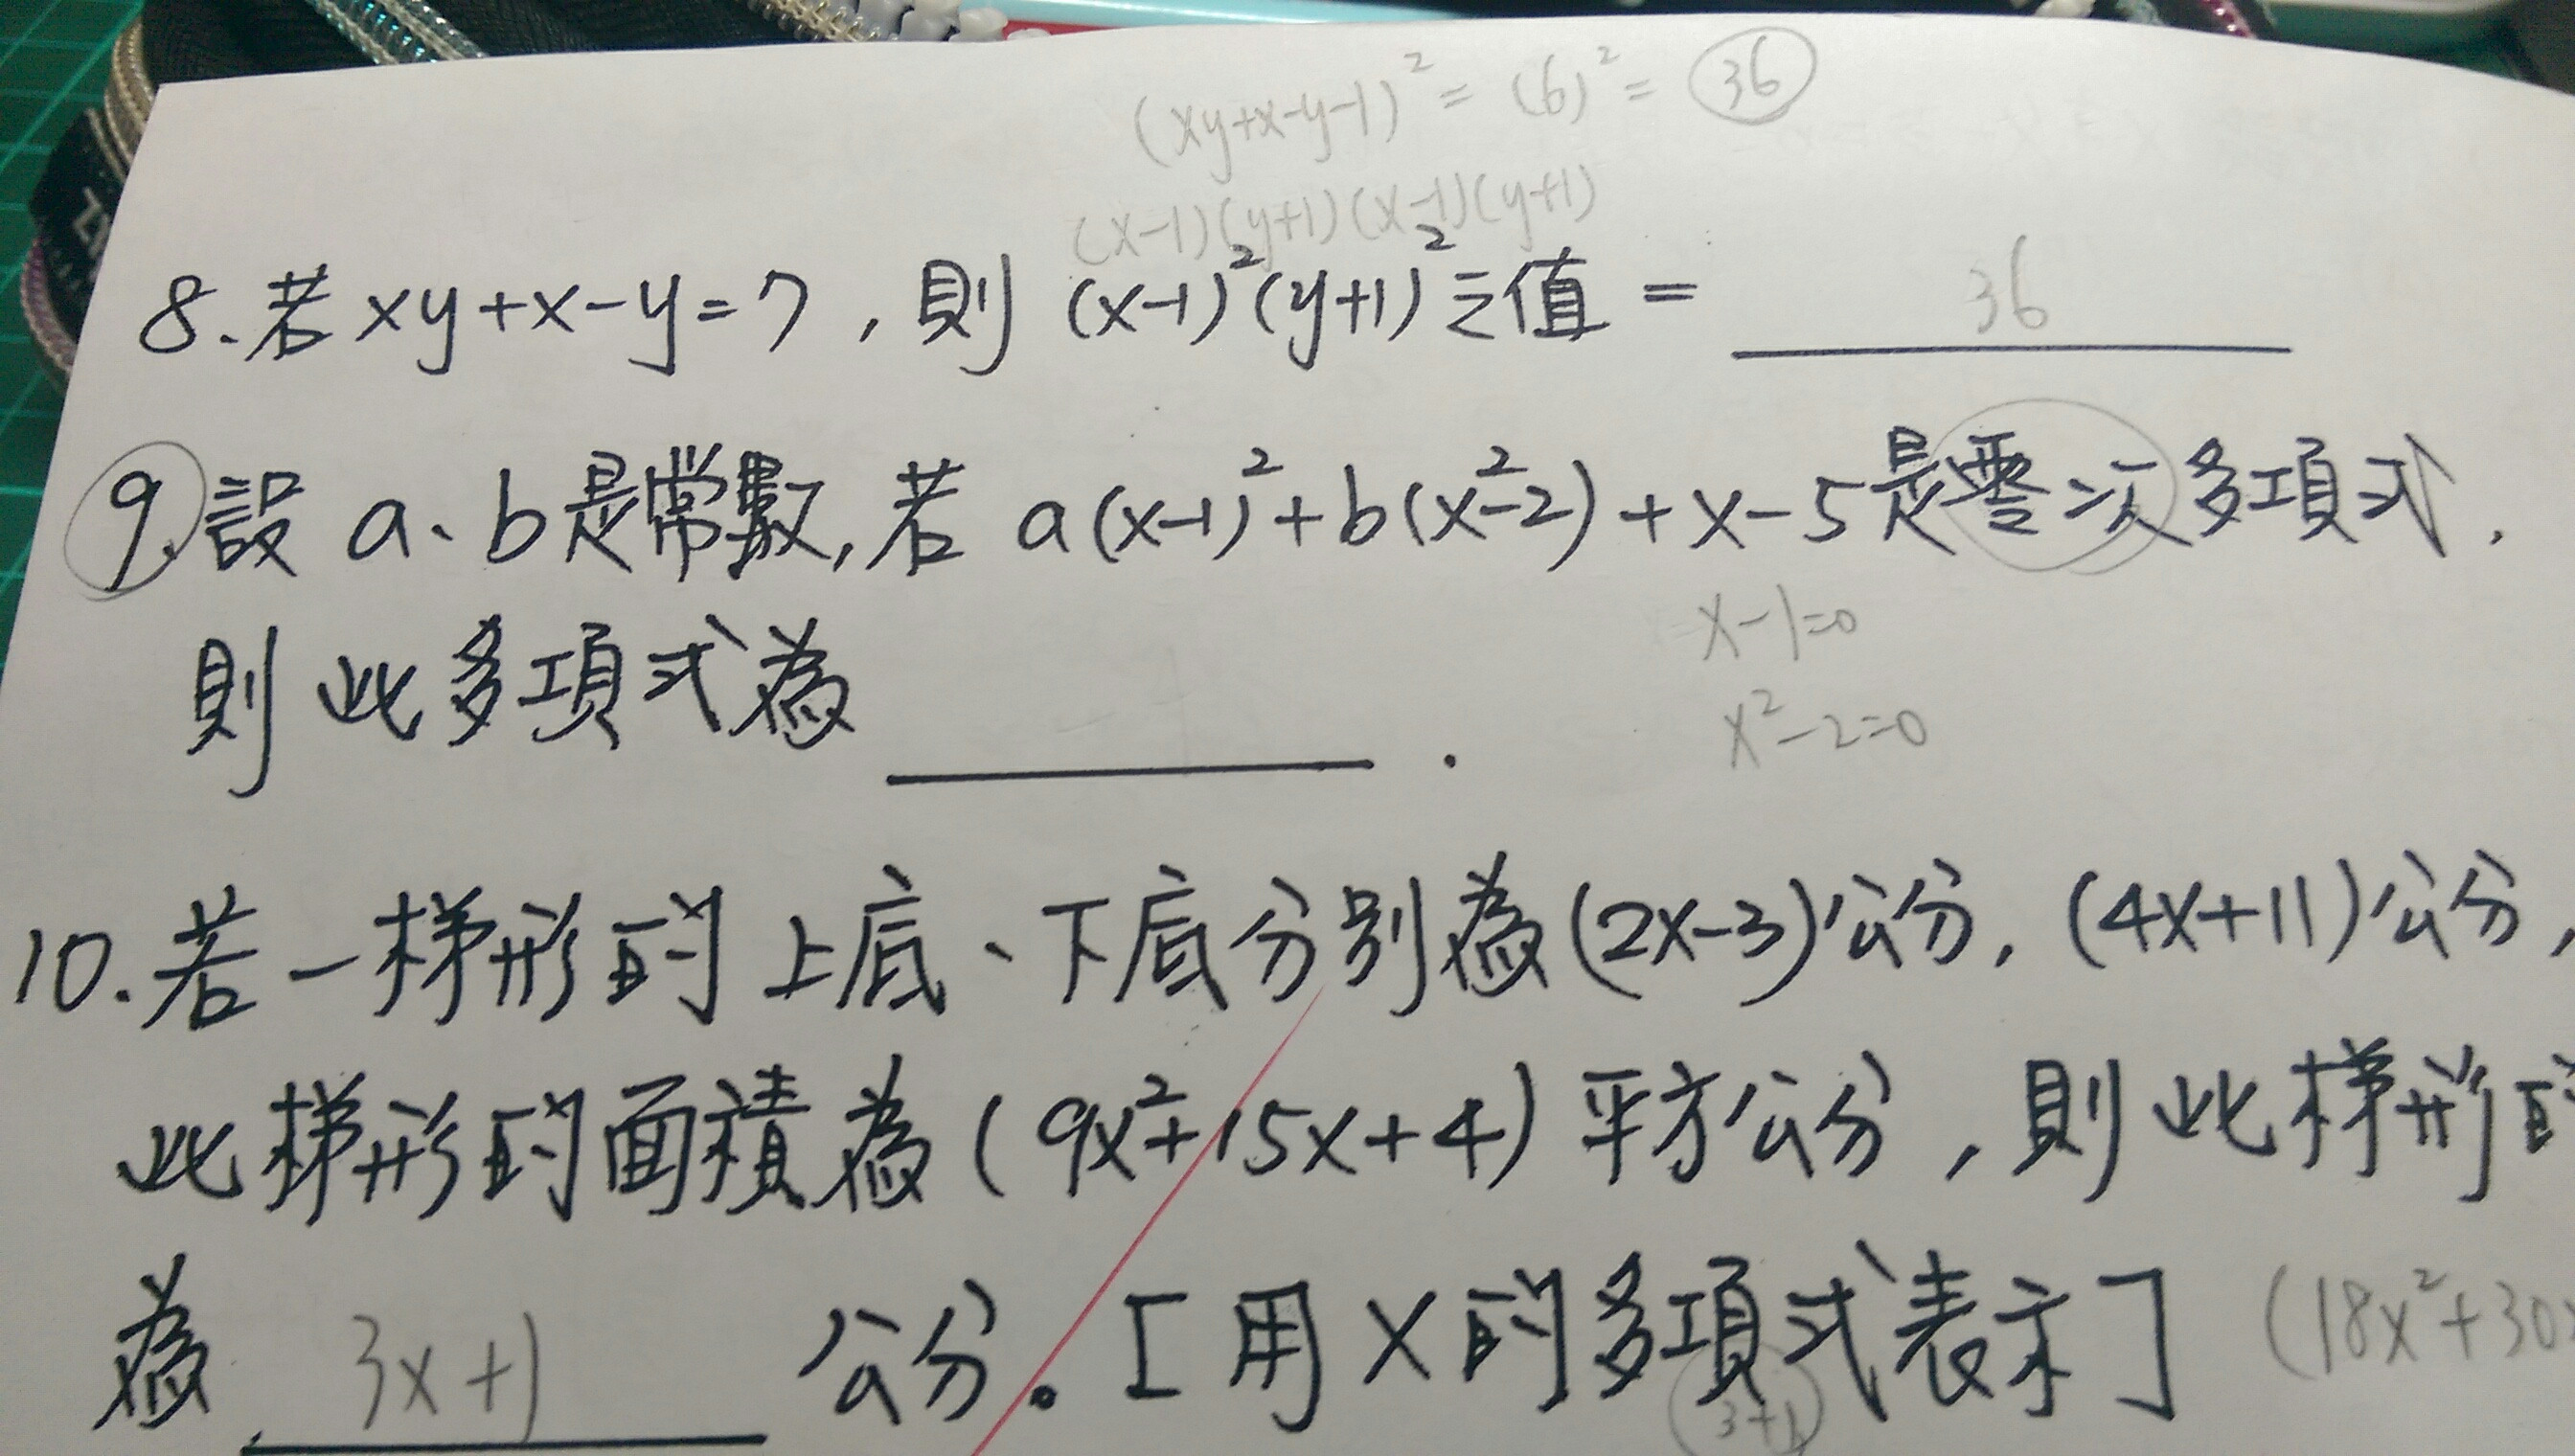 (xy+x-y-1)² = (6)² = 36
(x-1)(y+1)(x-1)(y+1)
8.若 xy+x-y=7，則 (x-1)²(y+1)²之值 = 36
9.設 a、b是常數,若 a(x-1)²+b(x²-2)+x-5是零次多項式,
x-1=0
則此多項式為 .
x²-2=0
10.若一梯形的上底、下底分別為(2x-3)公分,(4x+11)公分,
此梯形的面積為(9x²+15x+4)平方公分,則此梯形的
為 3x+1 公分。[用X的多項式表示] (18x²+30